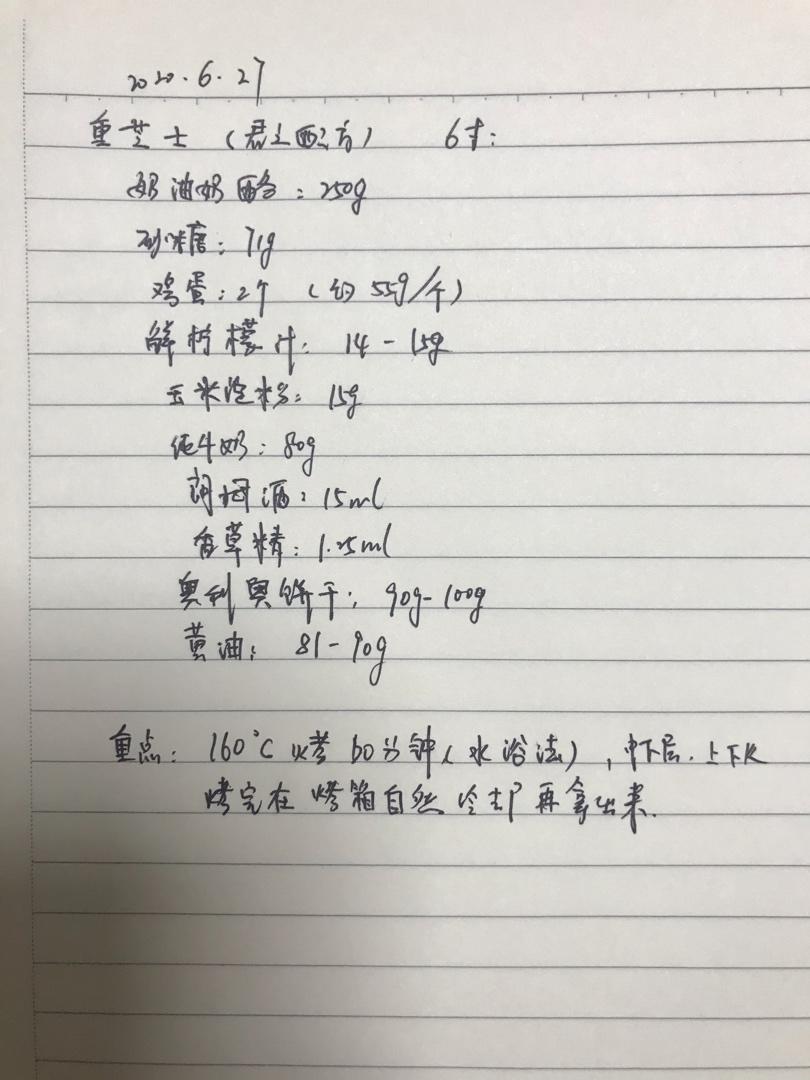 2020.6.27
重芝士（君之配方） 6寸：
奶油奶酪：250g
砂糖：71g
鸡蛋：2个 （约55g/个）
鲜柠檬汁：14-15g
玉米淀粉：15g
纯牛奶：80g
朗姆酒：15ml
香草精：1.25ml
奥利奥饼干：90g-100g
黄油：81-90g
重点：160℃烤60分钟（水浴法），中下层.上下火
烤完在烤箱自然冷却再拿出来.